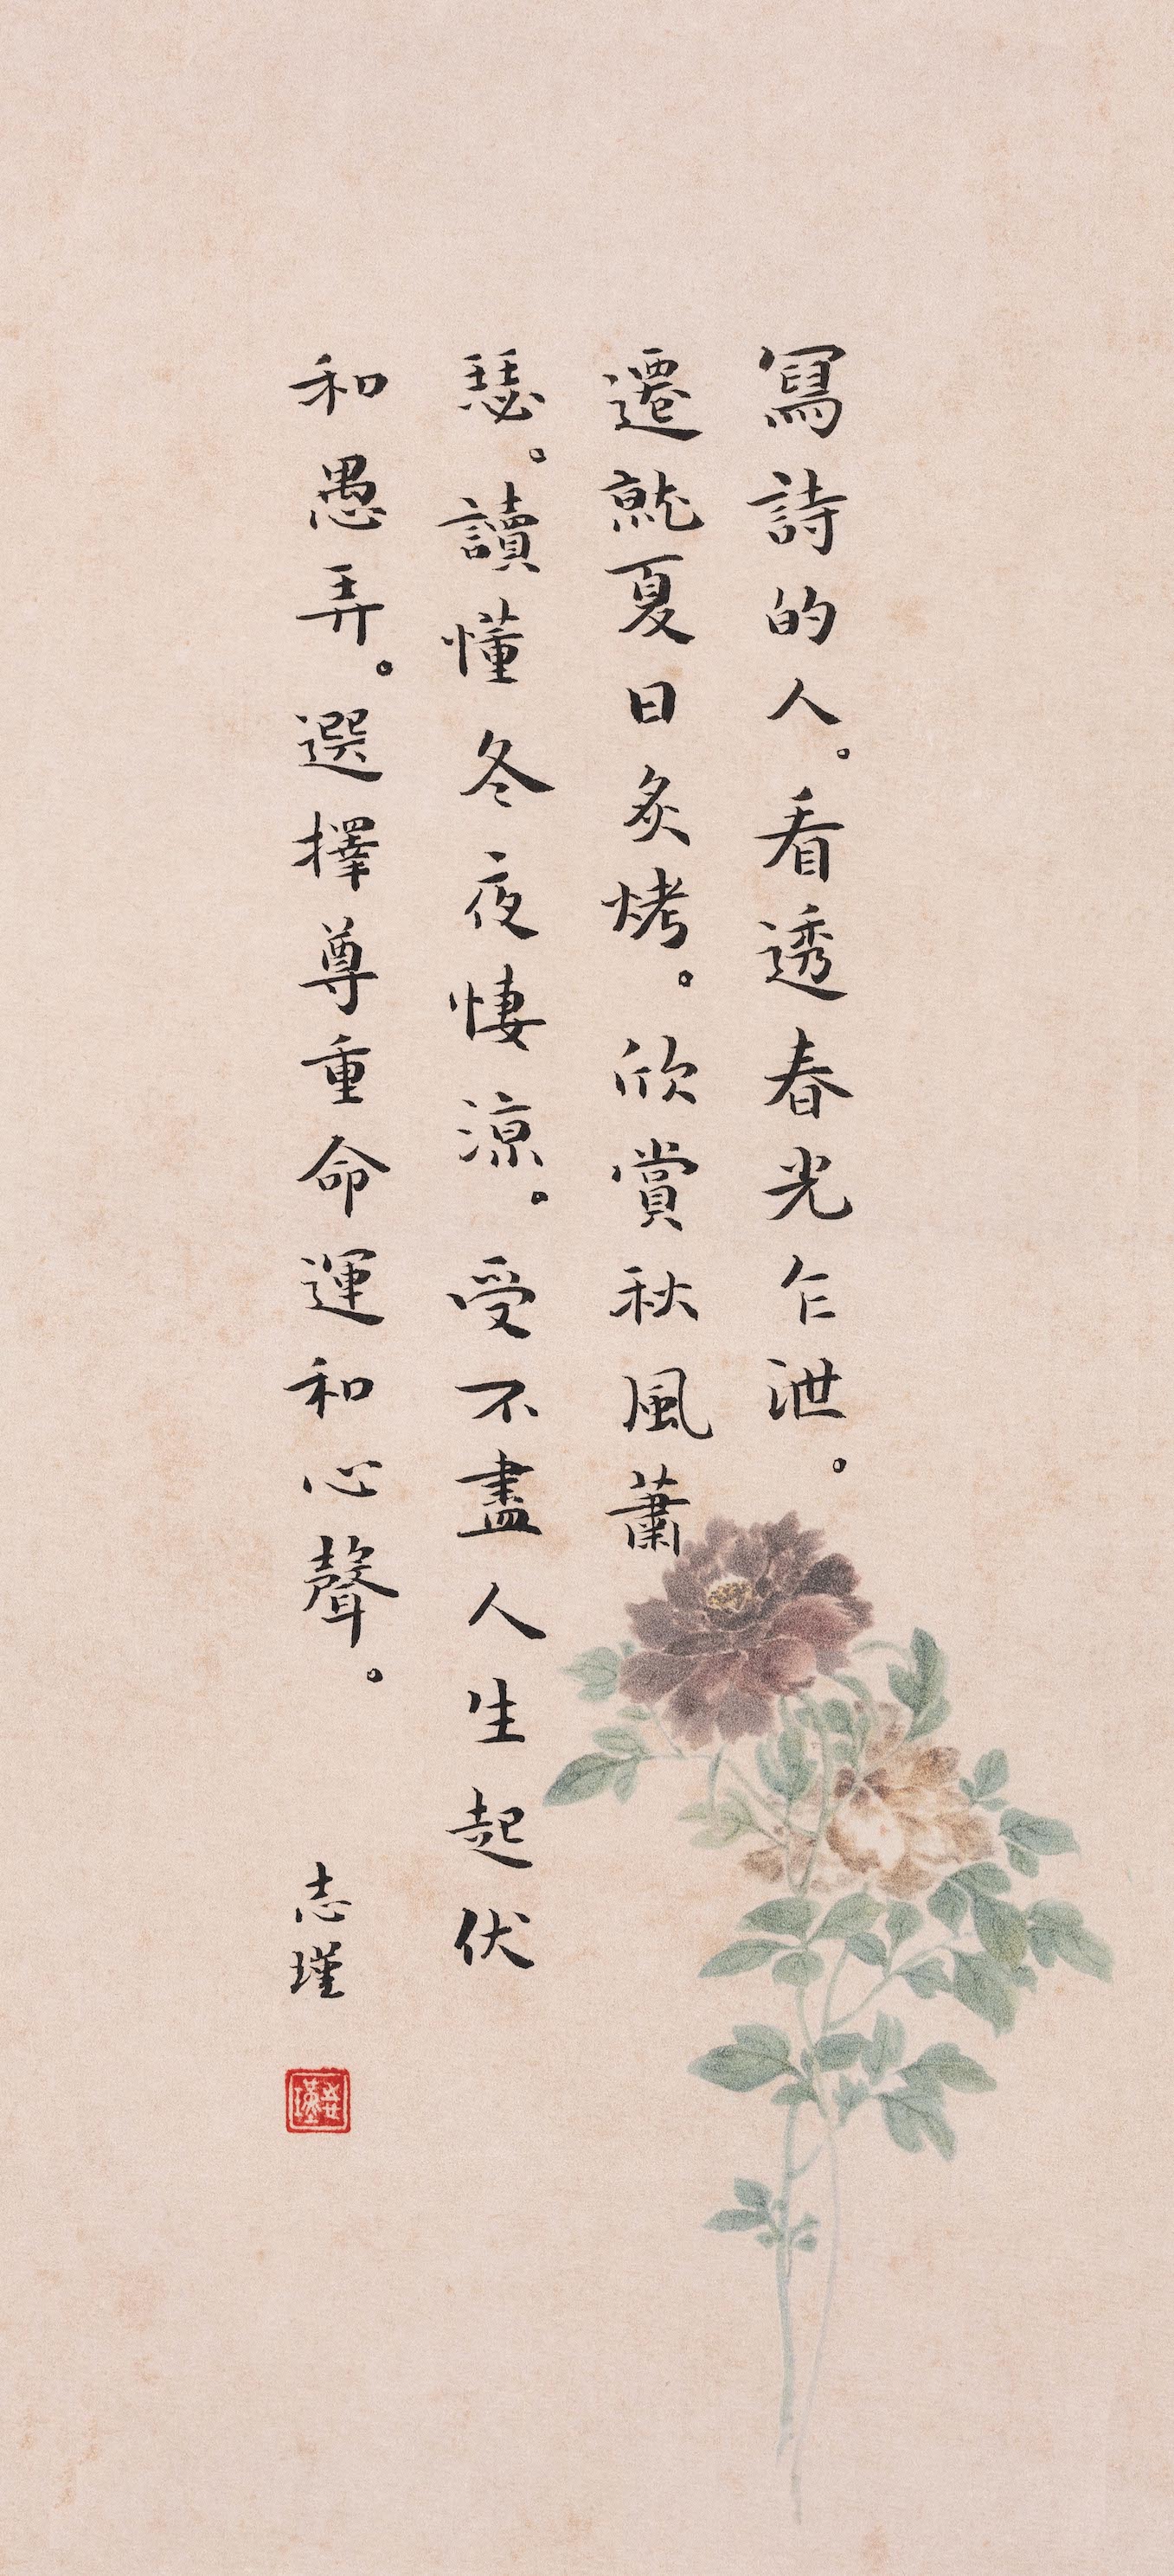 寫詩的人。看透春光乍泄。
遷就夏日炙烤。欣賞秋風蕭
瑟。讀懂冬夜悽涼。受不盡人生起伏
和愚弄。選擇尊重命運和心聲。
志瑾